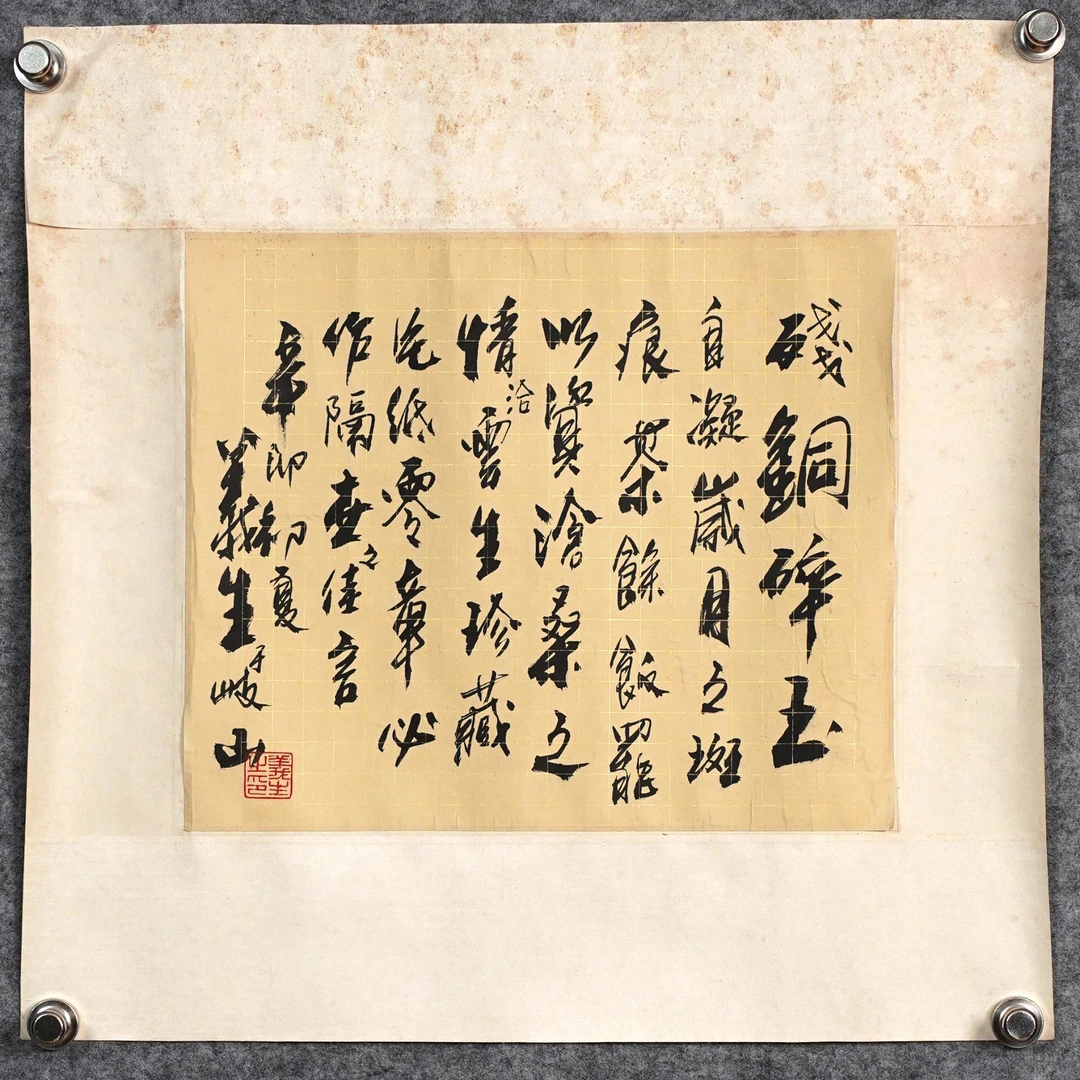 殘銅碎玉
自凝歲月之斑
痕茶餘飯罷
以資滄桑之
情洽雲生珍藏
片紙零章必
作隔壺之佳言
辛卯初夏
義生于岐山
義生之印